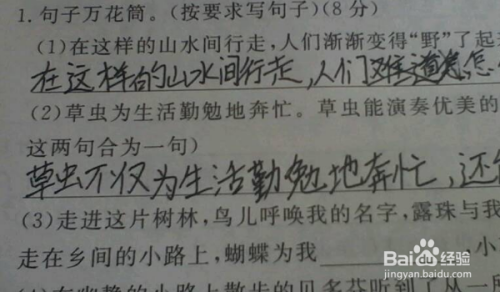 1.句子万花筒。(按要求写句子)(8分)
(1)在这样的山水间行走,人们渐渐变得“野”了起
在这样的山水间行走,人们难道怎
(2)草虫为生活勤勉地奔忙。草虫能演奏优美的
这两句合为一句)
草虫不仅为生活勤勉地奔忙,还
(3)走进这片树林,鸟儿呼唤我的名字,露珠与我
走在乡间的小路上,蝴蝶为我 ,小
幽静的小路上散步的贝多芬听到了从一
Baidu经验
jingyan.baidu.com